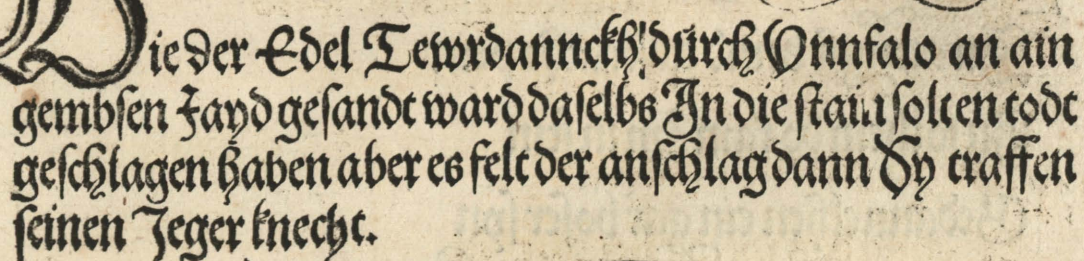 Wie der Edel Tewrdannckh durch Vnnfalo an ain
gembsen Jayd gesandt ward daselbs In die stain solten todt
geschlagen haben aber es felt der anschlag dann Sy traffen
seinen Jeger knecht.